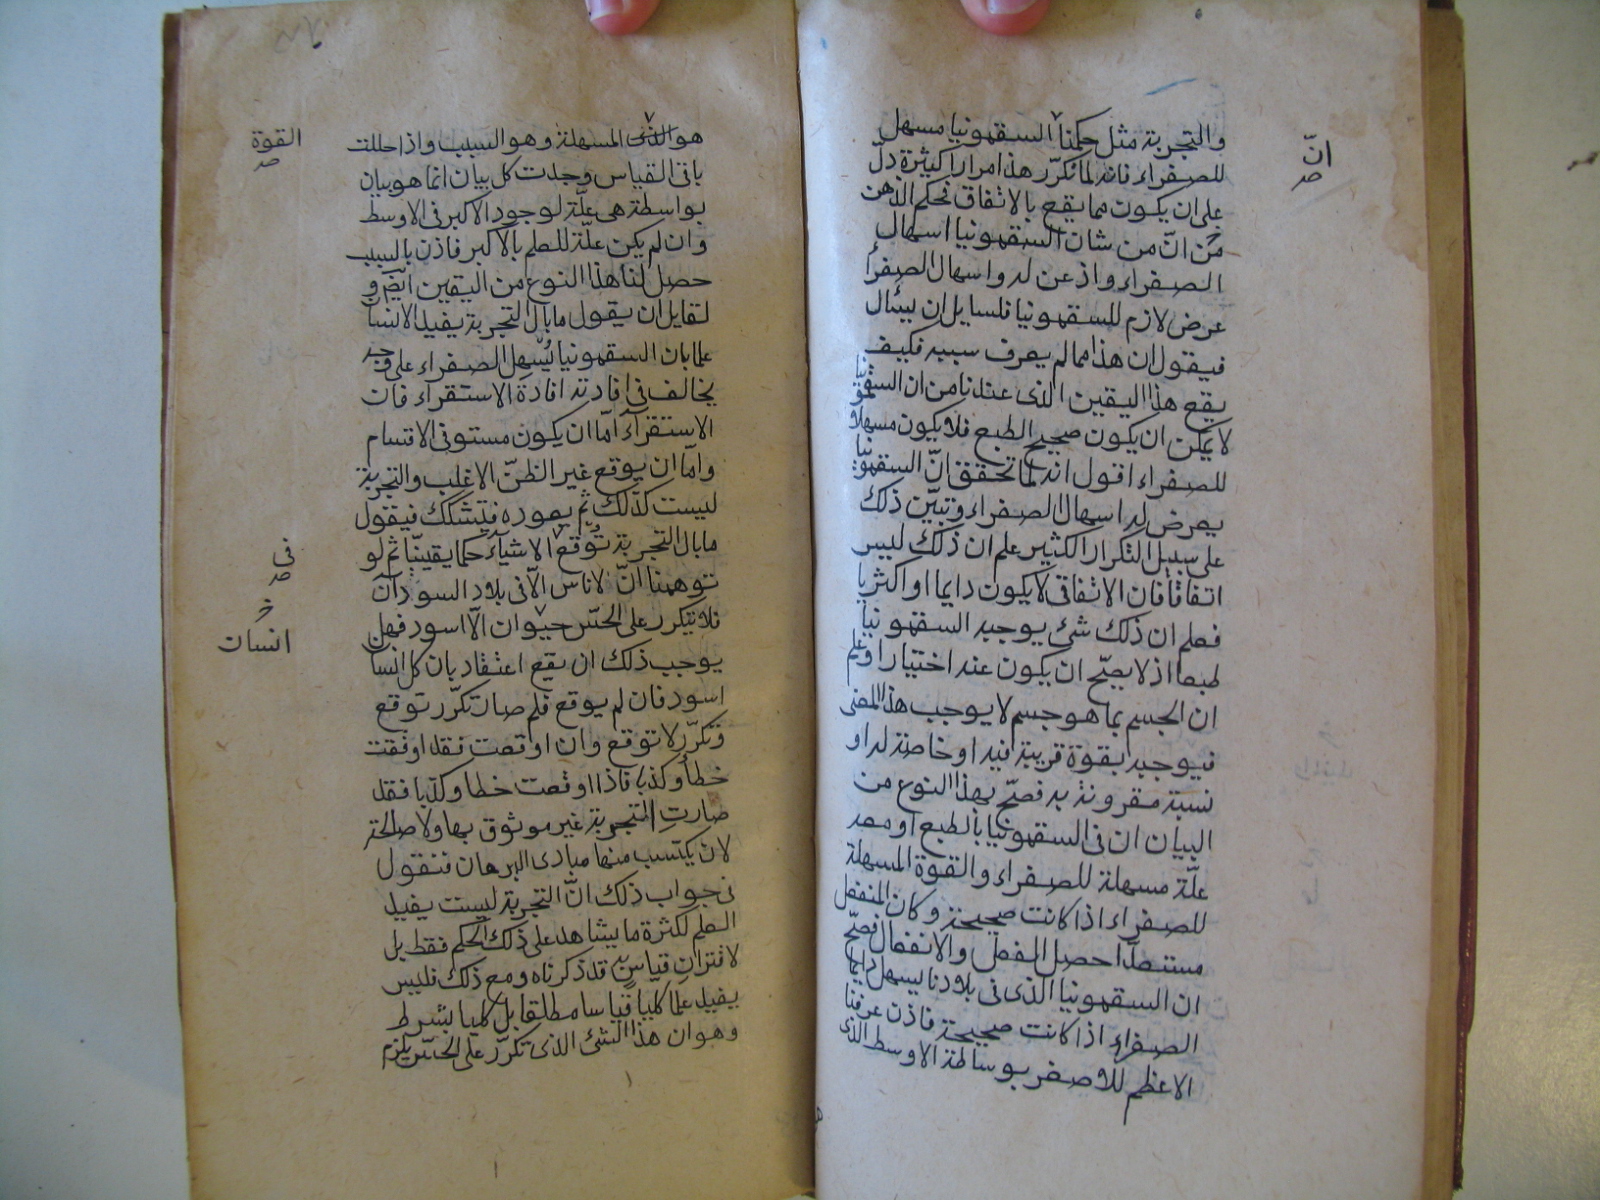 والتجربة مثل حكمنا السقمونيا مسهل
انّ
صح
للصفراء فانه لما تكرّر هذا مرارا كثيرة دلّ
على ان يكون مما يقع بالاتفاق فحكم الذهن
من انّ من شان السقمونيا اسهال
الصفراء واذعن له واسهال الصفراء
عرض لازم للسقمونيا فلسايل ان يسئال
فيقول ان هذا مما لم يعرف سببه فكيف
يقع هذا اليقين الذى عندنا من ان السقمونيا
لا يمكن ان يكون صحيح الطبع فلا يكون مسهلا
للصفراء اقول انه لما تحقق انّ السقمونيا
يعرض له اسهال الصفراء وتبيّن ذلك
على سبيل التكرار الكثير علم ان ذلك ليس
اتفاقا فان الاتفاقى لا يكون دايما او اكثريا
فعلم ان ذلك شئ يوجبه السقمونيا
طبعا اذ لا يصحّ ان يكون عنه اختيارا وعلم
ان الجسم بما هو جسم لا يوجب هذا المعنى
فيوجبه بقوة قريبة فيه او خاصة له او
نسبة مقرونة به فصحّ بهذا النوع من
البيان ان فى السقمونيا بالطبع او معه
علّة مسهلة للصفراء والقوة المسهلة
للصفراء اذا كانت صحيحة وكان المنفعل
مستعدّا حصل الفعل والانفعال فصحّ
ان السقمونيا الذى فى بلادنا يسهل دايما
الصفراء اذا كانت صحيحة فاذن عرفنا
الاعظم للاصغر بوساطة الاوسط الذى
هو المسهلة وهو السبب واذا حللت
القوة
صح
باقى القياس وجدت كل بيان انما هو بيان
بواسطة هى علّة لوجود الاكبر فى الاوسط
وان لم يكن علّة للعلم بالاكبر فاذن بالسبب
حصل لنا هذا النوع من اليقين ايضا و
لقايل ان يقول ما بال التجربة يفيد الانسان
علما بان السقمونيا تُسهل الصفراء على وجه
يخالف فى افادته افادة الاستقراء فان
الاستقراء امّا ان يكون مستوفى الاقسام
وامّا ان يوقع غير الظنّ الاغلب والتجربة
ليست كذلك ثم يعود فيتشكك فيقول
ما بال التجربة تُوقع الاشياء حكما يقينيّا ثم لو
فى
صح
توهمنا انّ لا ناس الّا فى بلاد السودان
فلا يتكرر على الحسّ حيوان الّا اسود فهل
انسان
يوجب ذلك ان يقع اعتقاد بان كل انسان
اسود فان لم يوقع فلم صار تكرّر توقع
وتكرّر لا توقع وان اوقعت فقد اوقعت
خطأ وكذبا فاذا اوقعت خطا وكذبا فقد
صارت التجربة غير موثوق بها ولا صالحة
لان يكتسب منها مبادى البرهان فنقول
فى جواب ذلك انّ التجربة ليست يفيد
العلم لكثرة ما يشاهد على ذلك الحكم فقط بل
لاقتران قياس به قد ذكرناه ومع ذلك فليس
يفيد علما كليا قياسا مطلقا بل كليا بشرط
وهو ان هذا الشئ الذى تكرّر على الحسّ يلزم